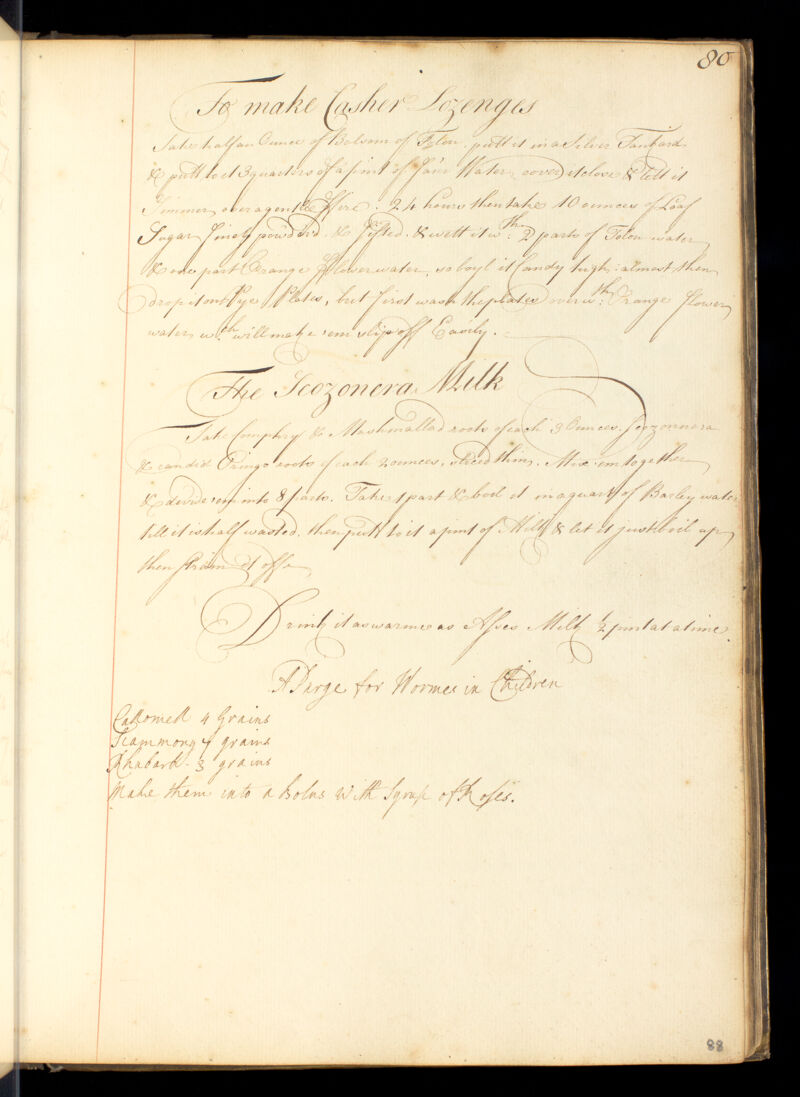 80
To make Casher Lozenges
Take half an Ounce of Balsom of Tolou. putt it in a Silver Tankard
& putt to it 3 quarters of a pint of fair Water, cover it close & lett it
Simmer over a gentle Fire: 24 hours then take 10 ounces of Loaf
Sugar finely powdrd & sifted. & wett it wth: 2 parts of Tolou water
& one part Orange Flower water, so boyl it Candy high: almost then
drop it on Pye Plates, but first wash the plates over wth: Orange flower
water wch: will make 'em slip off Easily.
The Scozonera Milk
Take Comphry & Mashmallad roots of each 3 Ounces. Scozonnera
& candid Eringo roots of each 2 ounces, sliced thin. Mix 'em together
& divide 'em into 8 parts. Take 1 part & boil it in a quart of Barley water
till it is half wasted. then putt to it a pint of Milk & let it just boil up
then strain it off
Drink it as warme as Asses Milk ½ pint at a time.
A Purge for Wormes in Children
Callomell 4 Grains
Scammony 4 grains
Rhubarb. 3 grains
Make them into a Bolus with Syrup of Roses.
88